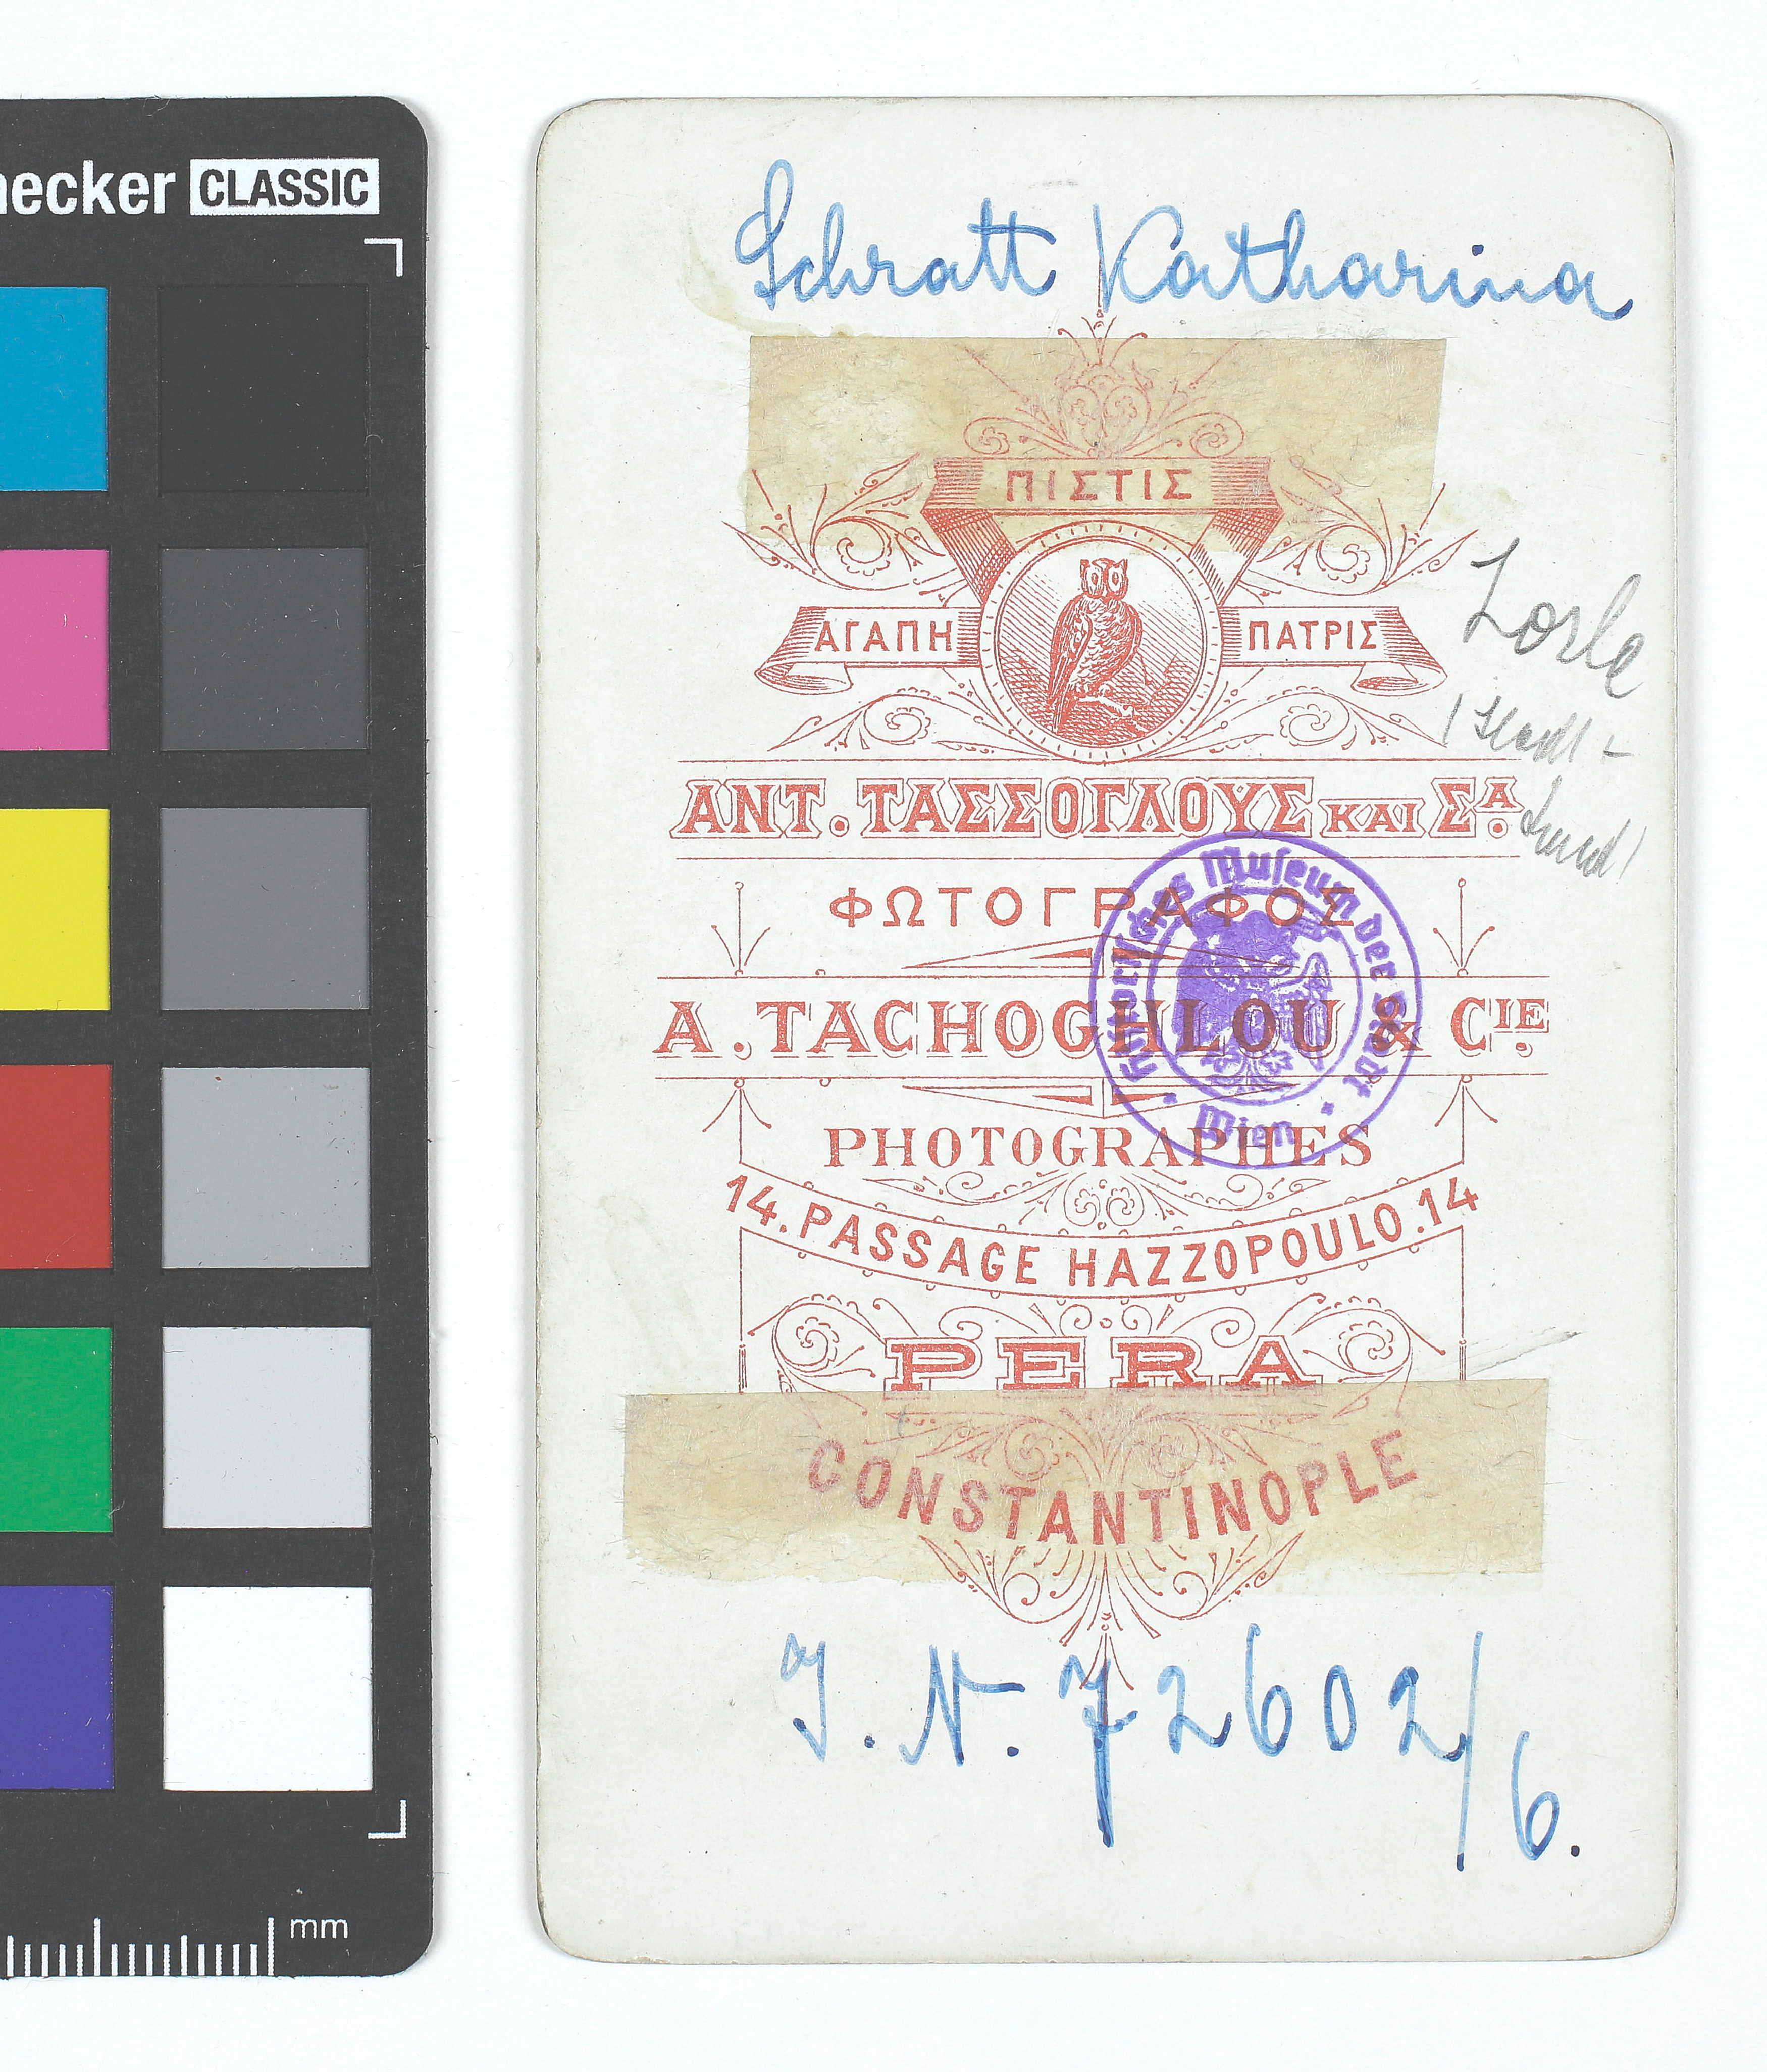 necker CLASSIC
Schratt Katharina
ΠΙΣΤΙΣ
ΑΓΑΠΗ ΠΑΤΡΙΣ
Lorle
ΑΝΤ. ΤΑΣΣΟΓΛΟΥΣ ΚΑΙ ΣΑ.
ΦΩΤΟΓΡΑΦΟΣ
Historisches Museum der Stadt Wien
A. TACHOGHLOU & CIE.
PHOTOGRAPHES
14. PASSAGE HAZZOPOULO. 14
PERA
CONSTANTINOPLE
I. N. 72602/6.
mm